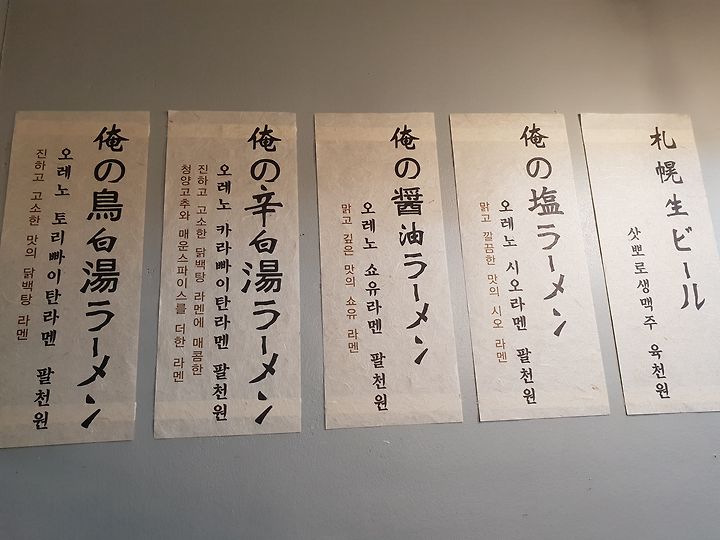 俺の鳥白湯ラーメン
오레노 토리빠이탄라멘 팔천원
진하고 고소한 맛의 닭백탕 라멘
俺の辛白湯ラーメン
오레노 카라빠이탄라멘 팔천원
진하고 고소한 닭백탕 라멘에 매콤한
청양고추와 매운스파이스를 더한 라멘
俺の醤油ラーメン
오레노 쇼유라멘 팔천원
맑고 깊은 맛의 쇼유 라멘
俺の塩ラーメン
오레노 시오라멘 팔천원
맑고 깔끔한 맛의 시오 라멘
札幌生ビール
삿뽀로생맥주 육천원